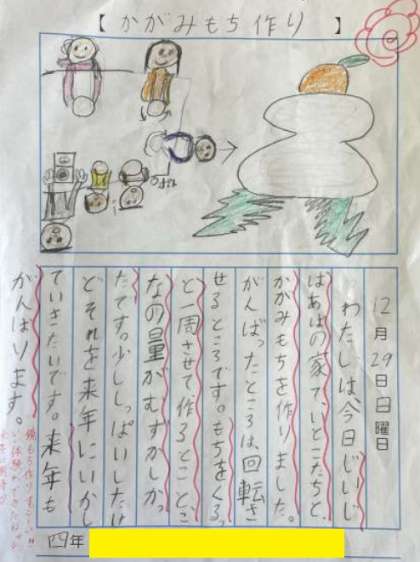 【かがみもち作り】
12月29日日曜日
わたしは今日じいじ
ばあばの家で、いとこたちと、
かがみもちを作りました。
がんばったところは、回転さ
せるところです。もちをくるっ
と一周させて作るとこと、こ
なの量がむずかしかっ
たです。少ししっぱいしたけ
どそれを来年にいかし
ていきたいです。来年も
がんばります。
四年